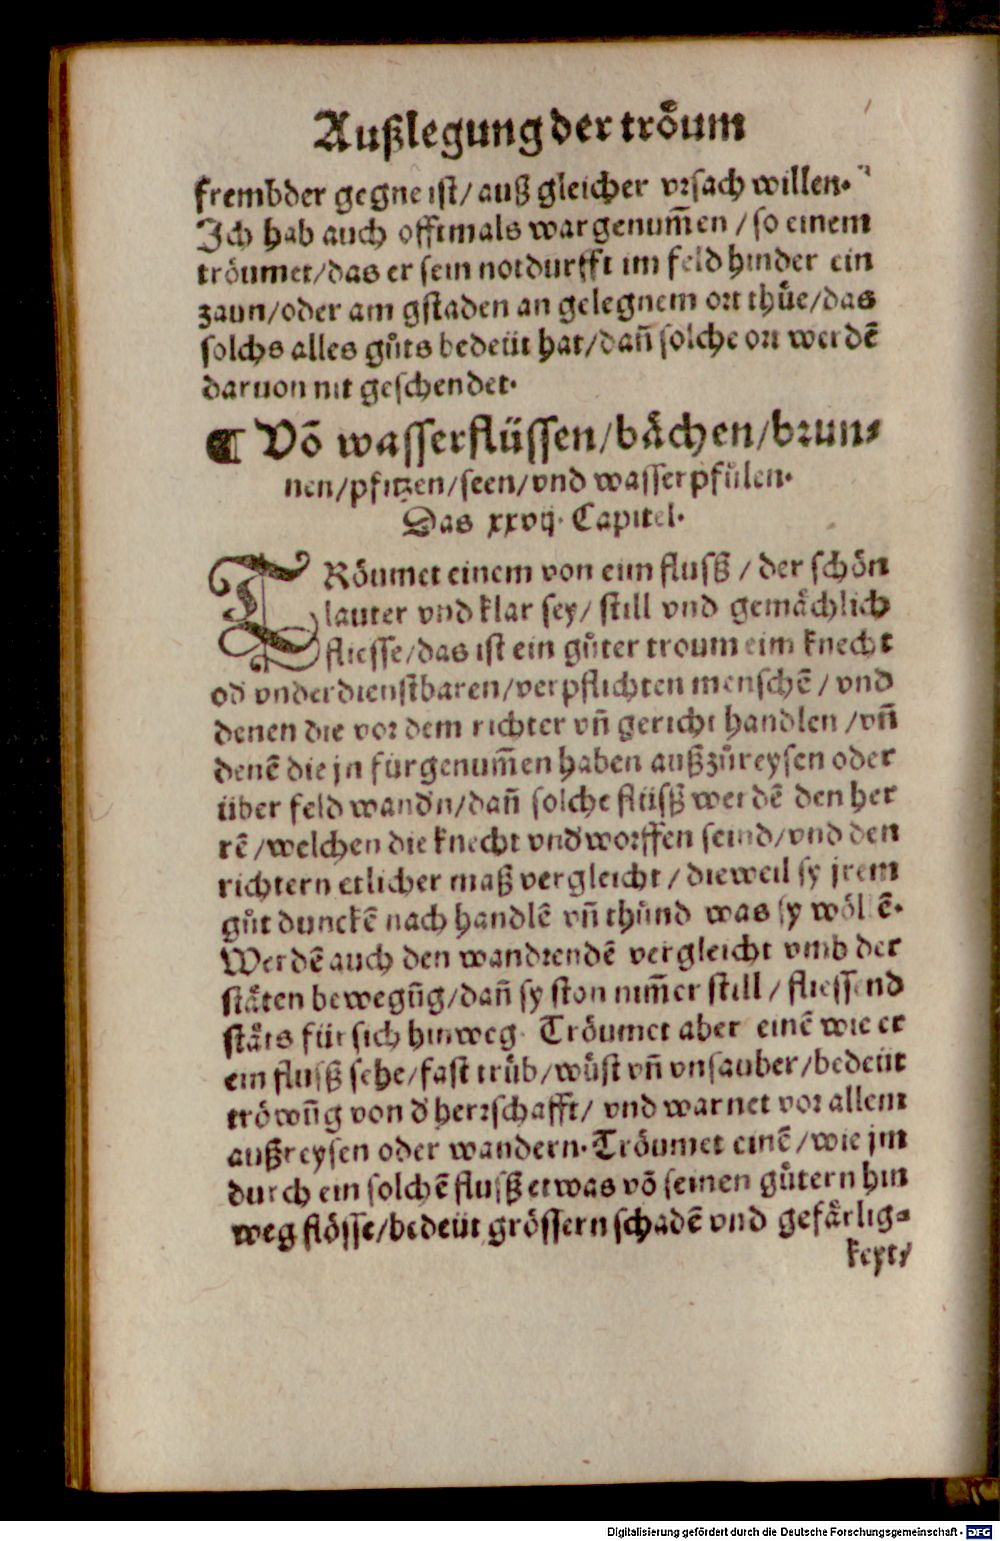 Außlegung der troͤum
frembder gegne ist/ auß gleicher vrsach willen.
Jch hab auch offtmals wargenum̃en / so einem
troͤumet/das er sein notdurfft im feld hinder ein
zaun/oder am gstaden an gelegnem ort thuͤe/das
solchs alles guͦts bedeüt hat/dañ solche ort werdẽ
daruon nit geschendet.
¶ Võ wasserflüssen/baͤchen/brun⸗
nen/pfitzen/seen/vnd wasserpfuͤlen.
Das xxvij. Capitel.
TRoͤumet einem von eim flusß / der schoͤn
lauter vnd klar sey/ still vnd gemaͤchlich
fliesse/das ist ein guͦter troum eim knecht
od vnderdienstbaren/verpflichten menschẽ / vnd
denen die vor dem richter vñ gericht handlen /vñ
denẽ die jn fürgenum̃en haben außzuͦreysen oder
über feld wandn/dañ solche flüsß werdẽ den her
rẽ /welchen die knecht vndworffen seind/vnd den
richtern etlicher maß vergleicht / dieweil sy jrem
guͦt dunckẽ nach handlẽ vñ thuͦnd was sy woͤllẽ.
Werdẽ auch den wandrendẽ vergleicht vmb der
staͤten bewegũg/dañ sy ston nim̃er still / fliessend
staͤts für sich hinweg. Troͤumet aber einẽ wie er
ein flusß sehe/fast truͤb/wuͤst vñ vnsauber/bedeüt
troͤwũg von d' herrschafft/ vnd warnet vor allem
außreysen oder wandern. Troͤumet einẽ /wie jm
durch ein solchẽ flusß etwas võ seinen guͤtern hin
weg floͤsse/bedeüt groͤssern schadẽ vnd gefaͤrlig⸗
keyt/
Digitalisierung gefördert durch die Deutsche Forschungsgemeinschaft - DFG